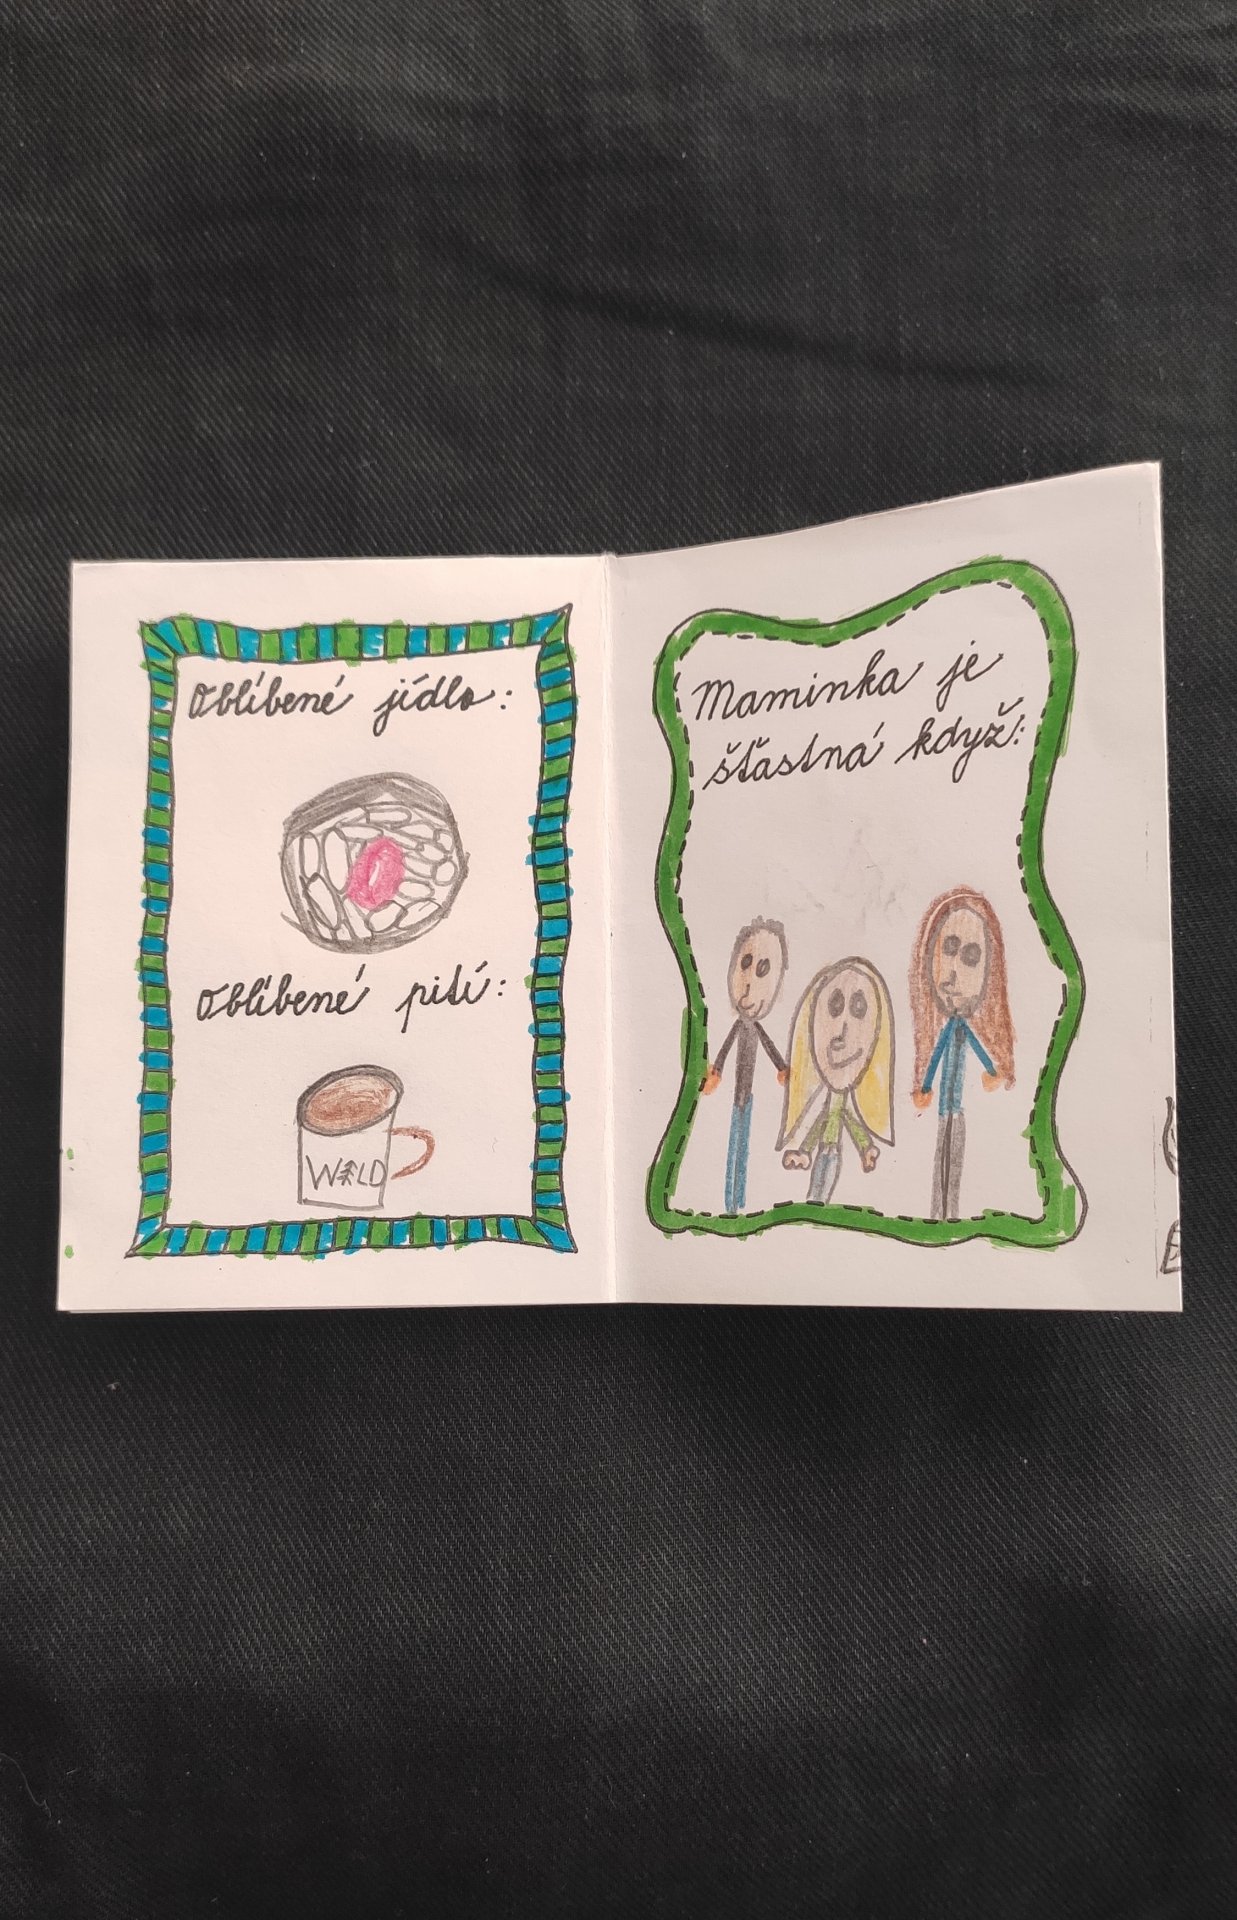 Oblíbené jídlo:
Oblíbené pití:
WILD
Maminka je
šťastná když: